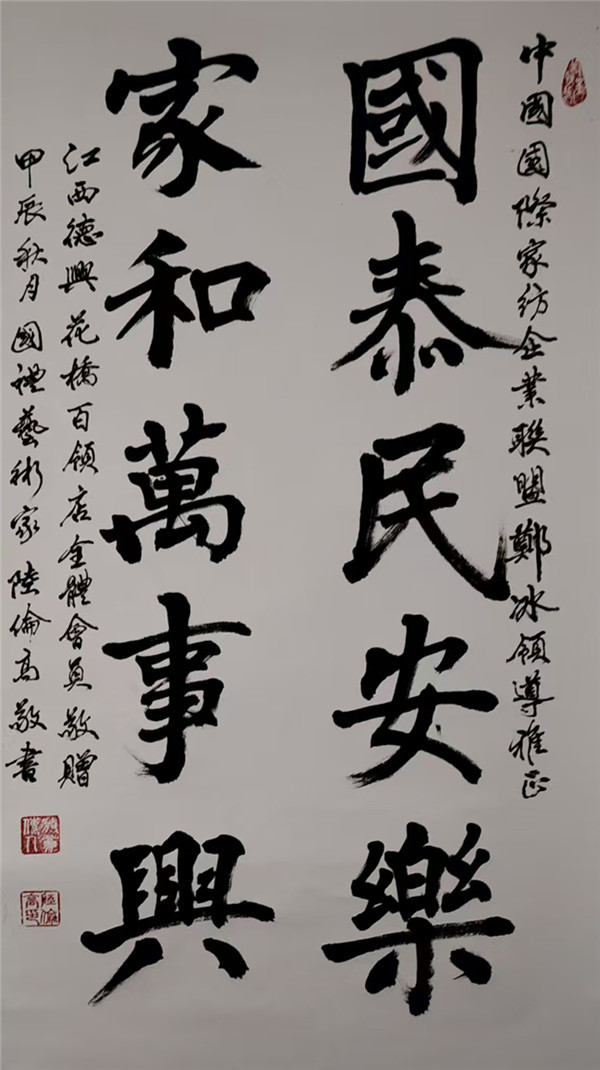 中國國際家紡企業聯盟鄭冰領導雅正
國泰民安樂
家和萬事興
江西德興花橋百領店全體會員敬贈
甲辰秋月國禮藝術家陸倫高敬書